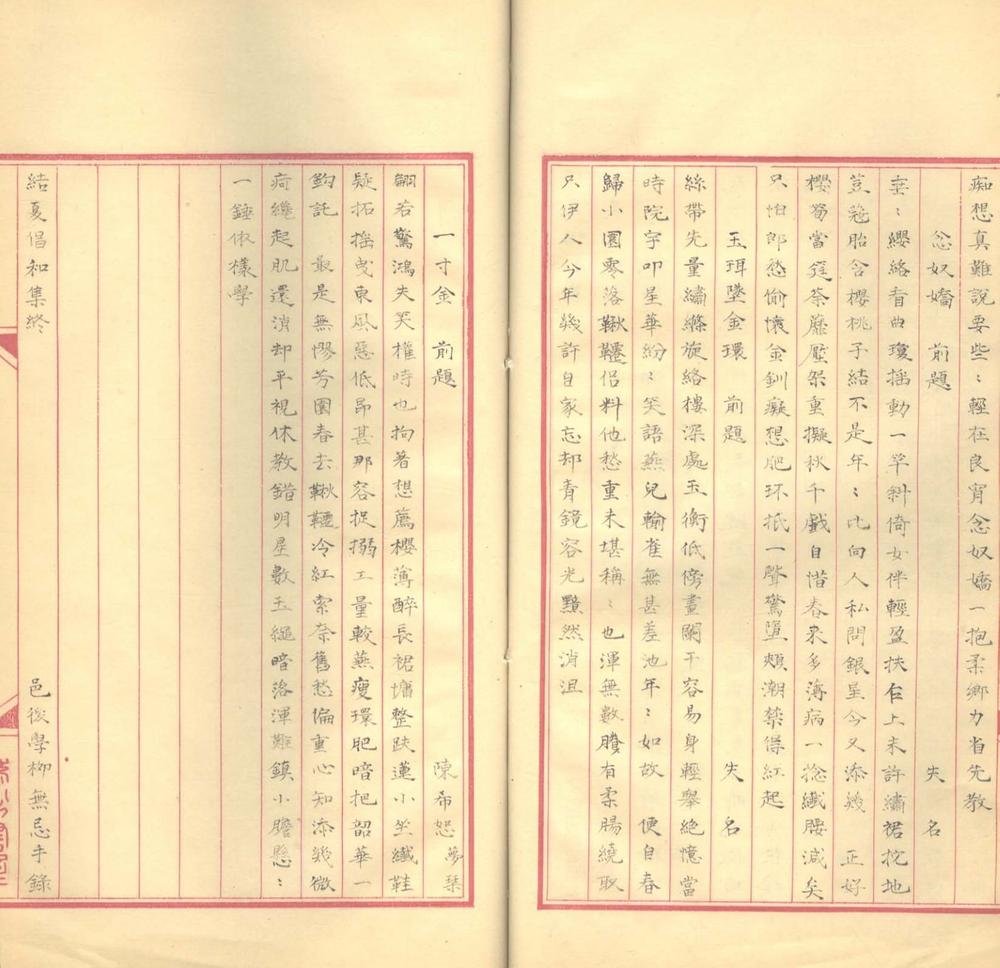 痴想真難說要些〻輕在良宵念奴嬌一抱柔鄉力省先教
念奴嬌 前題 失名
垂〻纓絡看曲瓊搖動一竿斜倚女伴輕盈扶乍上未許繡裙拕地
荳蔻胎含櫻桃子結不是年〻比向人私問銀星今又添幾 正好
櫻筍當筵荼蘼壓架重擬秋千戲自惜春來多薄病一捻纖腰減矣
只怕郎愁偷懷金釧癡想肥環抵一聲驚墮頰潮禁得紅起
玉珥墜金環 前題 失名
絲帶先量繡絛旋絡樓深處玉衡低傍畫闌干容易身輕舉絕憶當
時院宇叩星華紛〻笑語燕兒輸雀無甚差池年〻如故 便自春
歸小園零落鞦韆侶料他愁重未堪稱〻也渾無數賸有柔腸繞取
只伊人今年幾許自家忘却青鏡容光黯然消沮
一寸金 前題 陳希恕夢琴
翩若驚鴻夫笑權時也拘著想薦櫻薄醉長裙慵整趺蓮小坐纖鞋
疑拓搖曳東風惡低昂甚那容捉搦工量較燕瘦環肥暗把韶華一
鉤託 最是無憀芳園春去鞦韆冷紅索奈舊愁偏重心知添幾微
痾纔起肌還消却平視休教錯明星數玉繩暗落渾難鎮小膽懸〻
一錘俶樣學
結夏倡和集終 邑後學柳無忌手錄